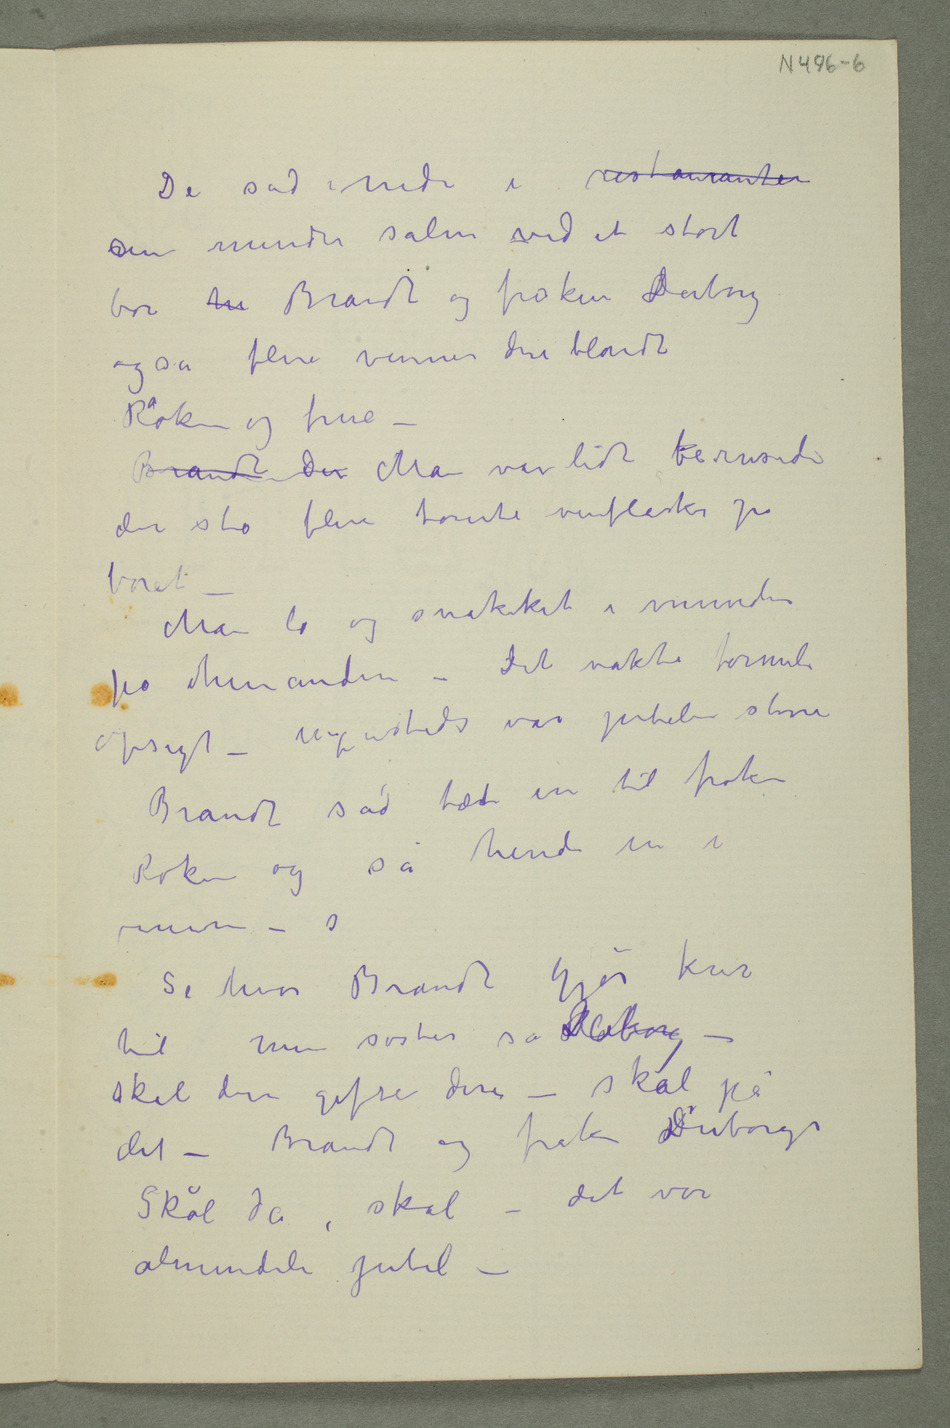 N496-6
De sad nede i restauranten
den mindre salen ved et stort
bor Brandt og frøken Dørborg
også flere venner deriblandt
Røken og frue –
Brandt Der Man var lidt berusede
der sto flere tomte vinflasker på
boret –
Man lo og snakket i munden
på hverandre – Det vakte
opsigt – var jubelen større
Brandt sad tæt in til frøken
Røken og så hende in i
Se hvor Brandt gjør kur
til min søster sa –
skal dere gifte dere – Skål på
det – Brandt og frøken
Skål da, skål – det var
almindeli jubel –